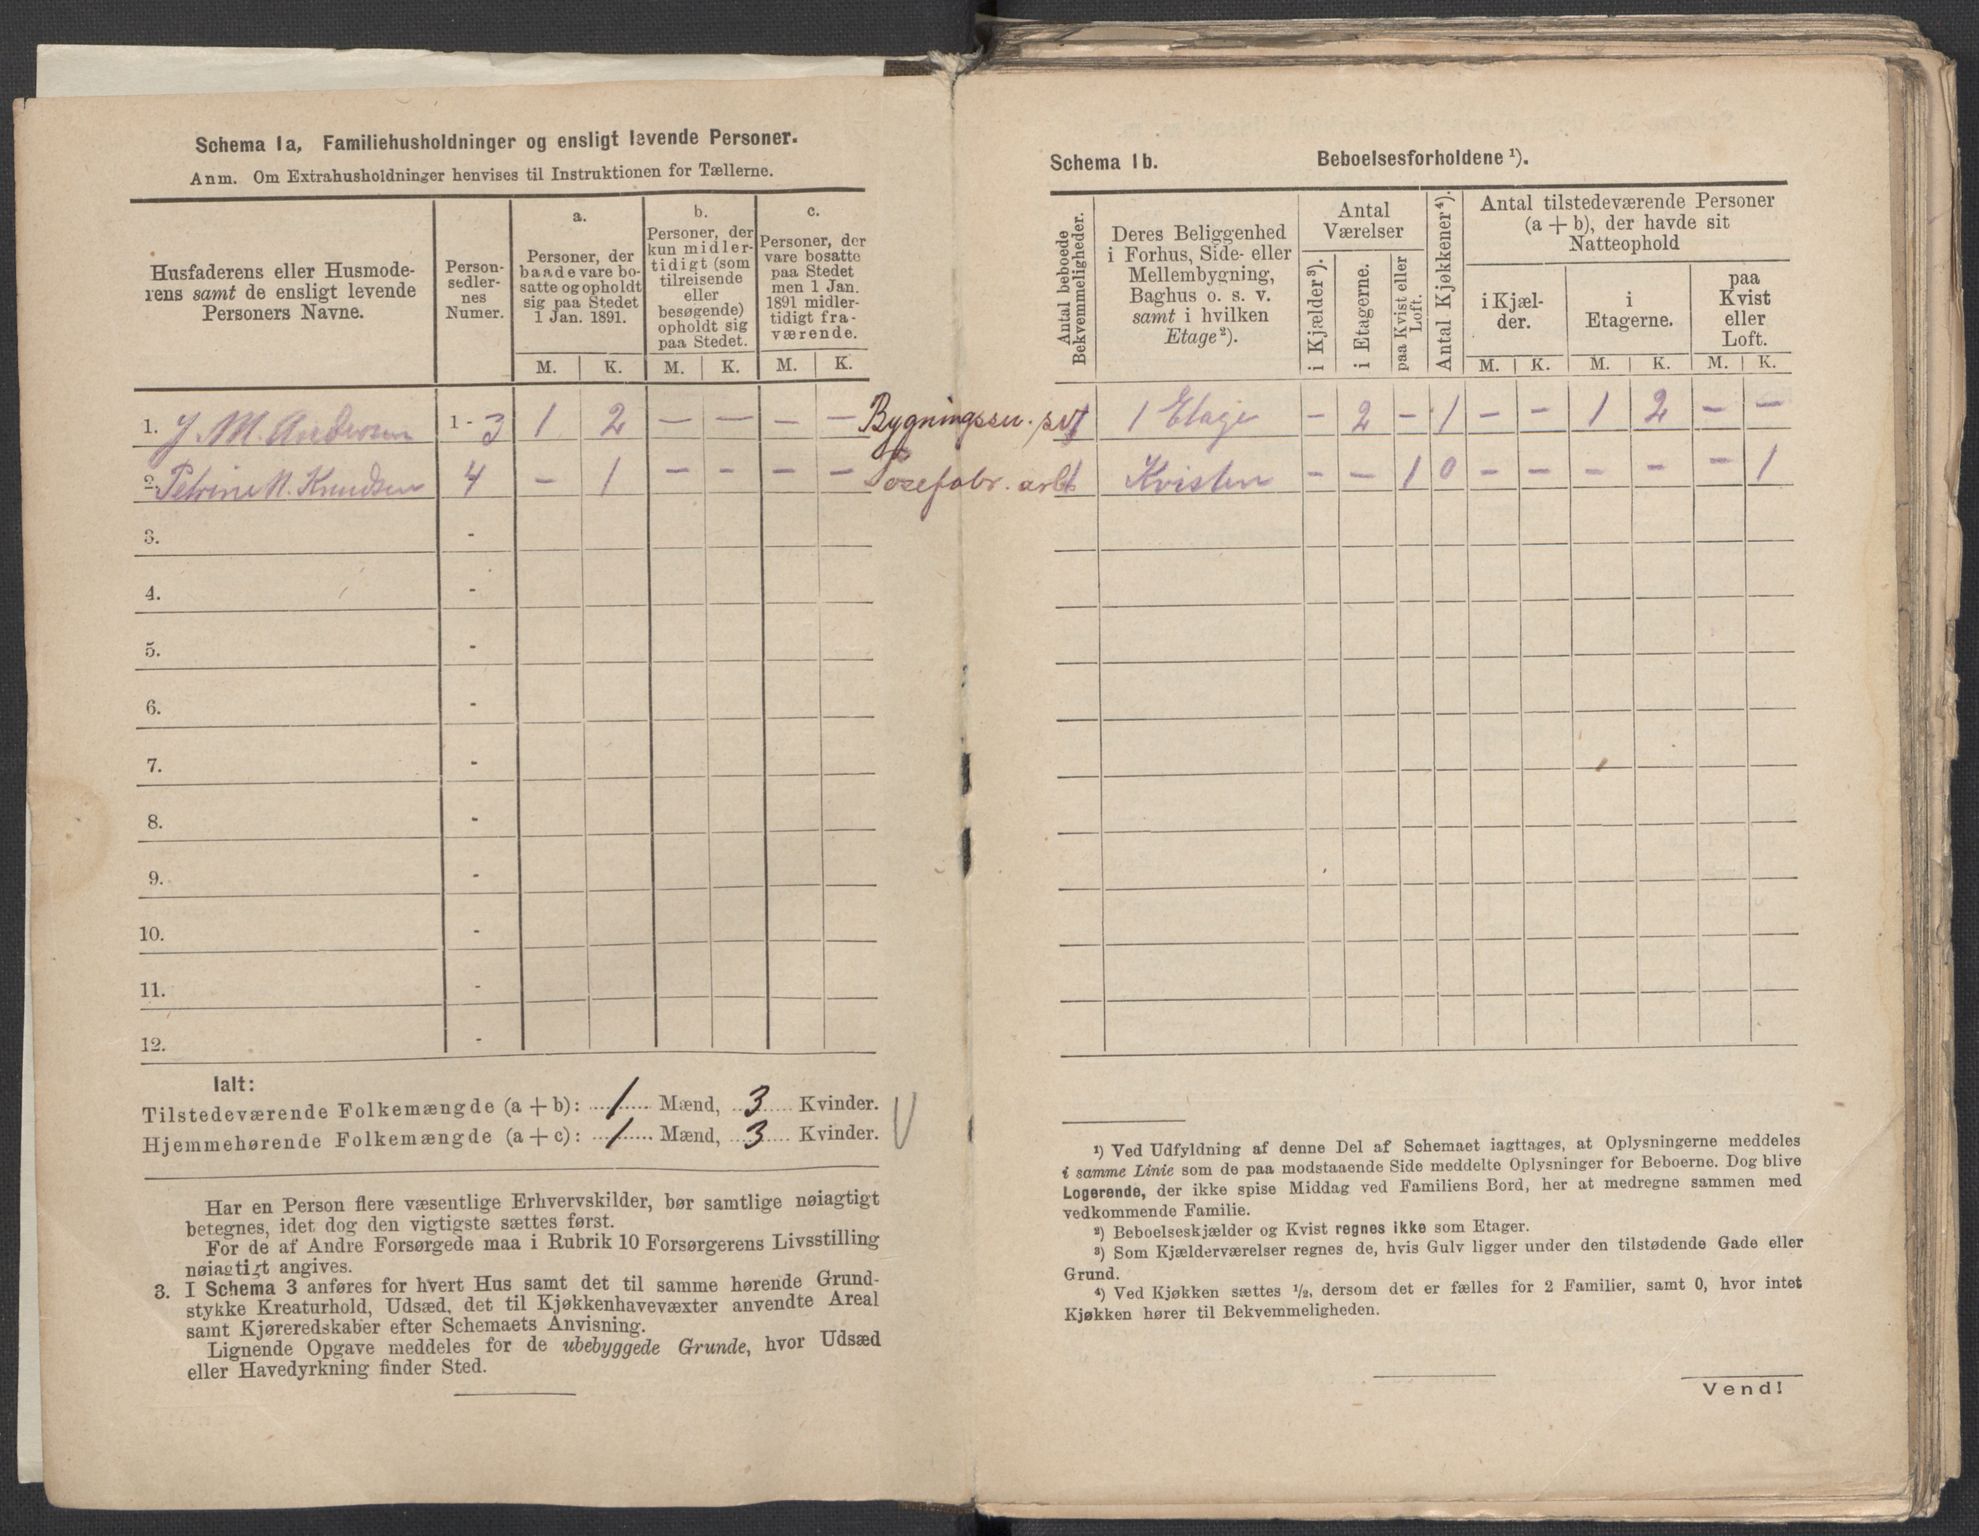 Schema 1a, Familiehusholdninger og ensligt levende Personer.
Anm. Om Extrahusholdninger henvises til Instruktionen for Tællerne.
Husfaderens eller Husmode-
rens samt de ensligt levende
Personers Navne.
Person-
sedler-
nes
Numer.
a.
Personer, der
baade vare bo-
satte og opholdt
sig paa Stedet
1 Jan. 1891.
b.
Personer, der
kun midler-
tidigt (som
tilreisende
eller
besøgende)
opholdt sig
paa Stedet.
c.
Personer, der
vare bosatte
paa Stedet
men 1 Jan.
1891 midler-
tidigt fra-
værende.
M. K. M. K. M. K.
1. J. M. Andersen 1 - 3 1 2 — — — — Bygningssn.
2. Petrine M. Knudsen 4 — 1 — — — — arb
3. -
4. -
5. -
6. -
7. -
8. -
9. -
10. -
11. -
12. -
Ialt:
Tilstedeværende Folkemængde (a + b): 1 Mænd, 3 Kvinder.
Hjemmehørende Folkemængde (a + c): 1 Mænd, 3 Kvinder.
Har en Person flere væsentlige Erhvervskilder, bør samtlige nøiagtigt
betegnes, idet dog den vigtigste sættes først.
For de af Andre Forsørgede maa i Rubrik 10 Forsørgerens Livsstilling
nøiagtigt angives.
3. I Schema 3 anføres for hvert Hus samt det til samme hørende Grund-
stykke Kreaturhold, Udsæd, det til Kjøkkenhavevæxter anvendte Areal
samt Kjøreredskaber efter Schemaets Anvisning.
Lignende Opgave meddeles for de ubebyggede Grunde, hvor Udsæd
eller Havedyrkning finder Sted.
Schema 1b. Beboelsesforholdene ¹).
Antal beboede
Bekvemmeligheder.
Deres Beliggenhed
i Forhus, Side- eller
Mellembygning,
Baghus o. s. v.
samt i hvilken
Etage²).
Antal
Værelser
i Kjælder³).
i Etagerne.
paa Kvist eller
Loft.
Antal Kjøkkener⁴).
Antal tilstedeværende Personer
(a + b), der havde sit
Natteophold
i Kjæl-
der.
i
Etagerne.
paa
Kvist
eller
Loft.
M. K. M. K. M. K.
1 1 Etage — 2 — 1 — — 1 2 — —
1 Kvisten — — 1 0 — — — — — 1
¹) Ved Udfyldning af denne Del af Schemaet iagttages, at Oplysningerne meddeles
i samme Linie som de paa modstaaende Side meddelte Oplysninger for Beboerne. Dog blive
Logerende, der ikke spise Middag ved Familiens Bord, her at medregne sammen med
vedkommende Familie.
²) Beboelseskjælder og Kvist regnes ikke som Etager.
³) Som Kjælderværelser regnes de, hvis Gulv ligger under den tilstødende Gade eller
Grund.
⁴) Ved Kjøkken sættes ½, dersom det er fælles for 2 Familier, samt 0, hvor intet
Kjøkken hører til Bekvemmeligheden.
Vend!